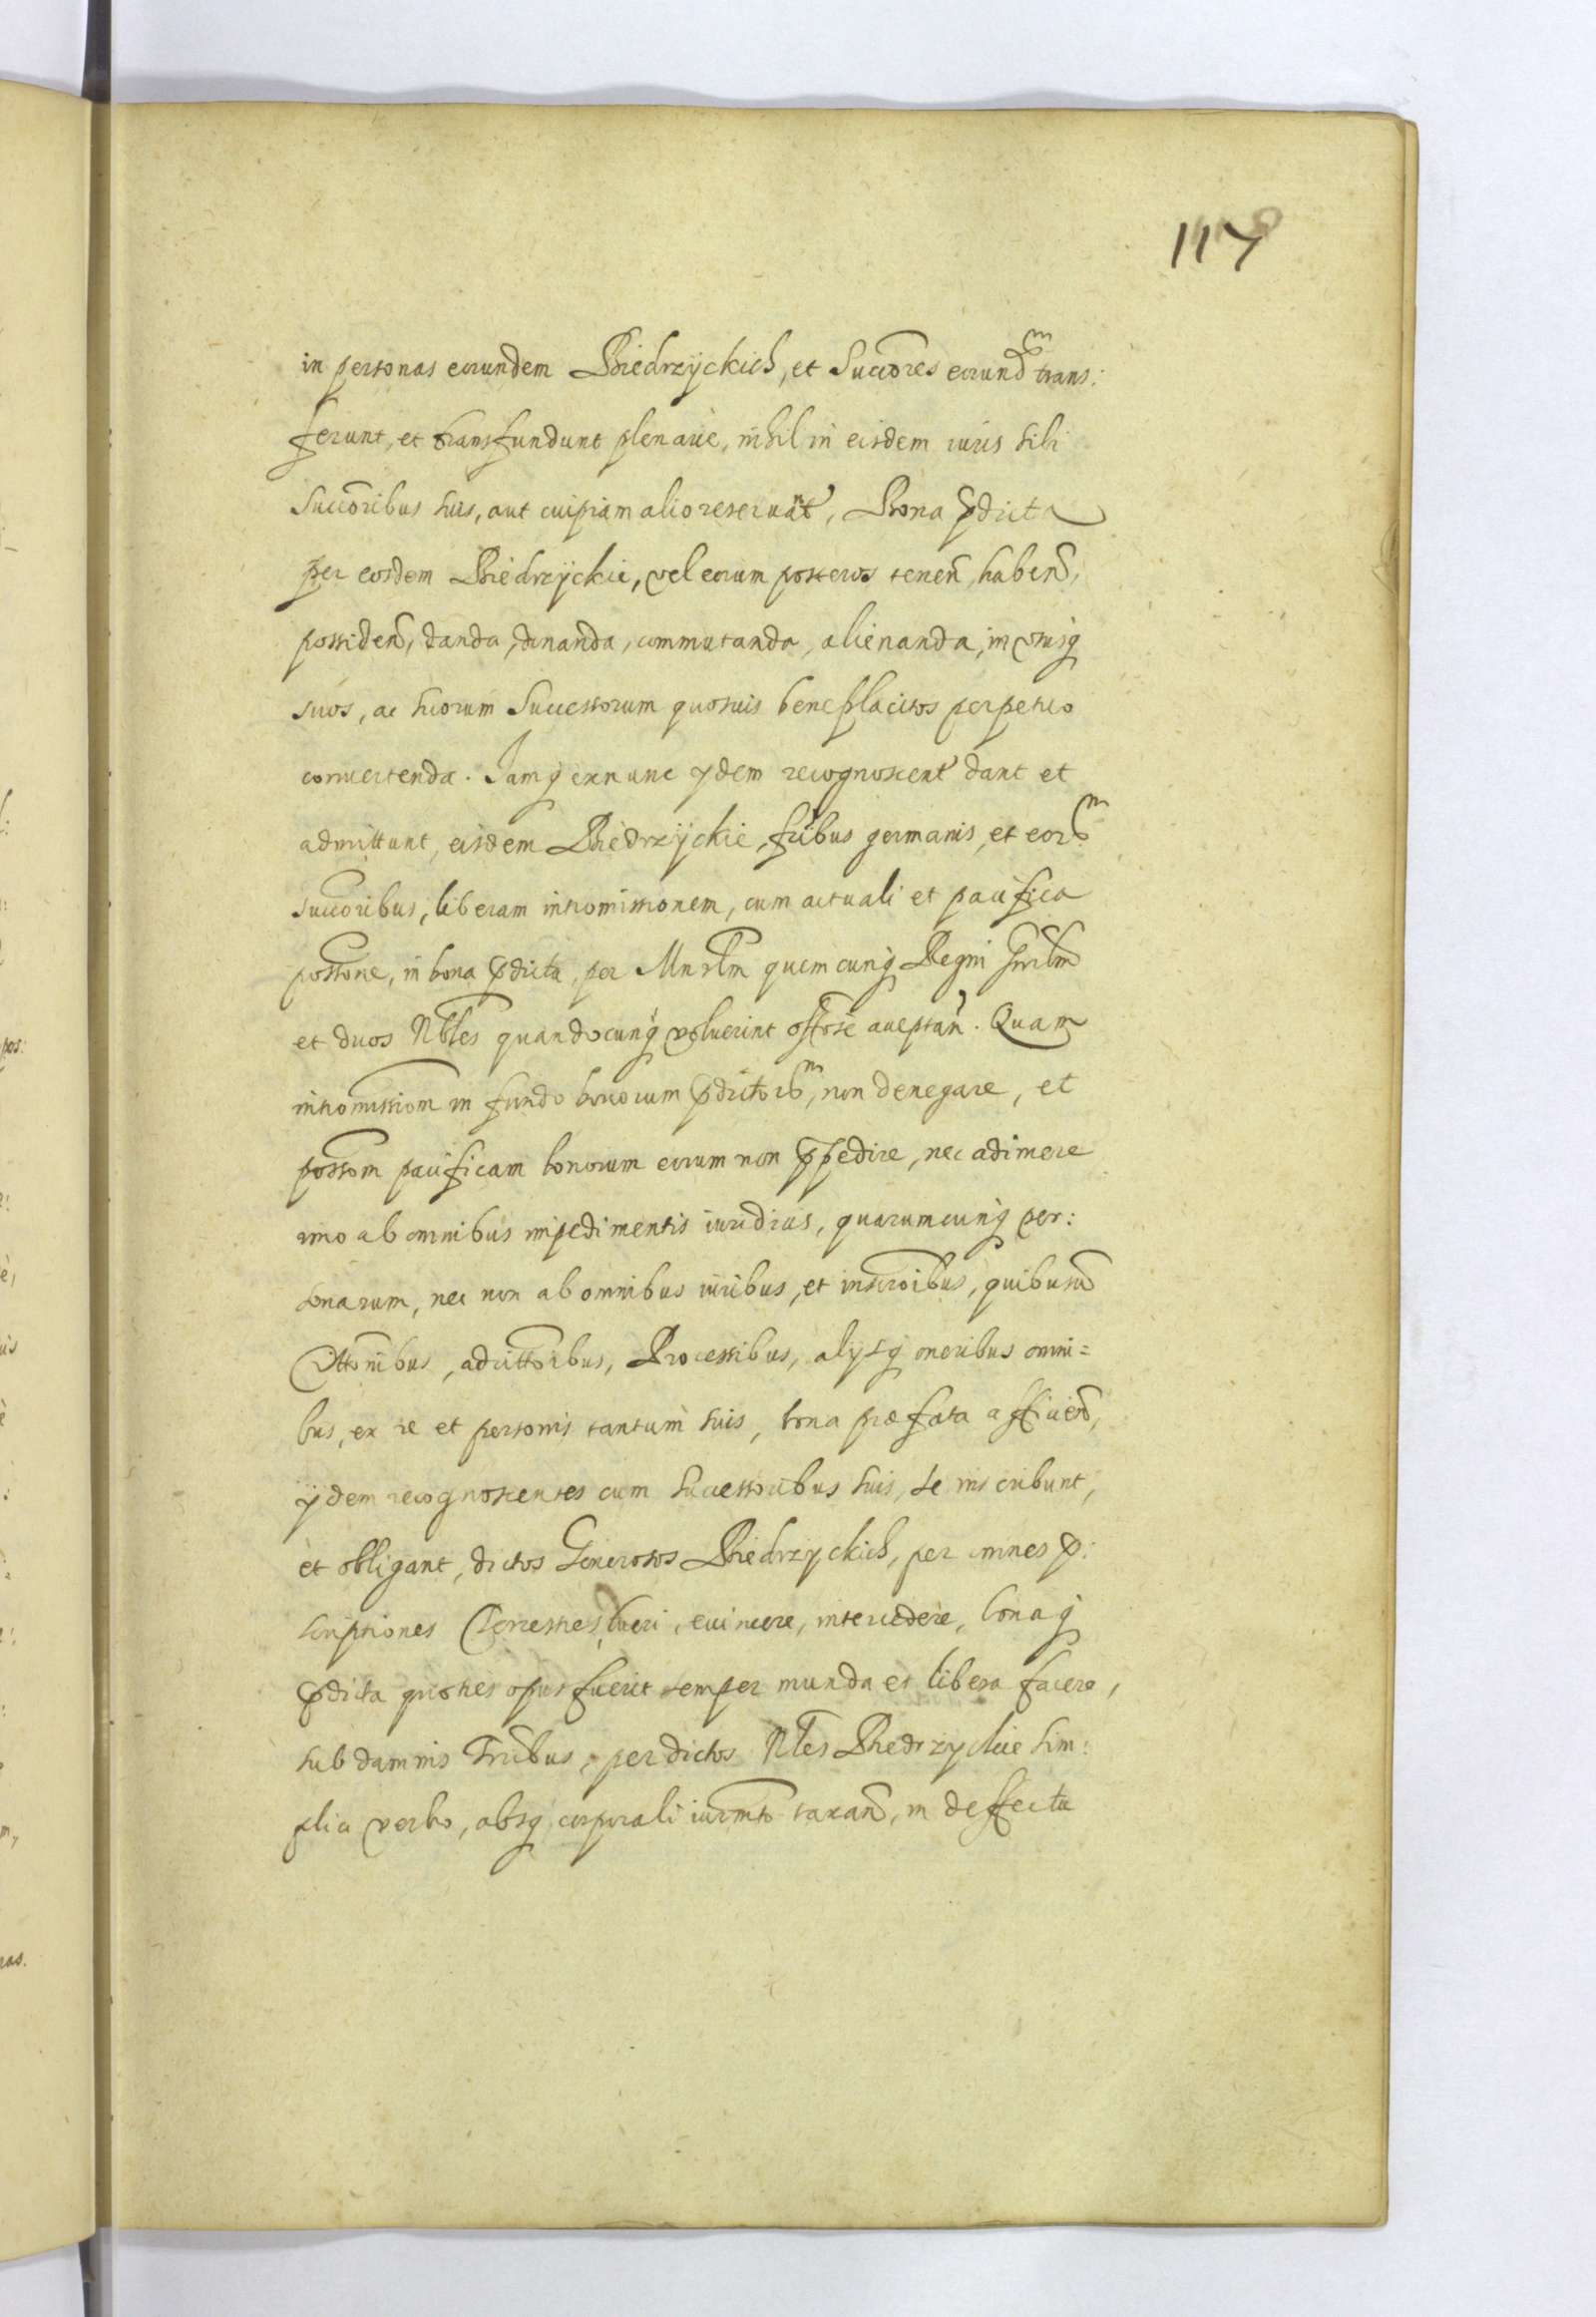 117
in personas eorundem Biedrzyckich, et Succores eorund͠m trans:
ferunt, et transfundunt plenarie, nihil in eisdem iuris sibi
Succoribus suis, aut cuipiam alio reseruant, Bona pdicta
per eosdem Biedrzyckie, vel eorum posteros tenen̄, haben̄,
possiden̄, danda, donanda, commutanda, alienanda, in ususq
suos, ac suorum Successorum quosuis beneplacitos perpetuo
conuertenda. Iamq ex nunc ydem recognoscent̄ dant et
admittunt, eisdem Biedrzyckie, fribus germanis, et eorm
succoribus, liberam intromissionem, cum actuali et pacifica
possone, in bona pdicta, per Mnrlm quemcunq Regni Gnrlm
et duos Nbles quandocunq voluerint offose acceptan̄. Quam
intromissiom in fundo bonorum pdictorm, non denegare, et
possom pacificam bonorum eorum non ppedire, nec adimere
imo ab omnibus impedimentis iuridicis, quarumcunq per:
sonarum, nec non ab omnibus iuribus, et inscroibus, quibusuis
Cittonibus, adcittoibus, Processibus, alysq oneribus omni=
bus, ex re et personis tantum suis, bona præfata afficien̄,
ydem recognoscentes cum successoribus suis, se inscribunt,
et obligant, dictos Generosos Biedrzyckich, per omnes p:
scriptiones Terrestres, tueri, euincere, intercedere, bonaq
pdicta quoties opus fuerit semper munda et libera facere,
sub damnis trribus, per dictos Nles Biedrzyckie sim:
plici verbo, absq corporali iurmto taxan̄, in deffectu